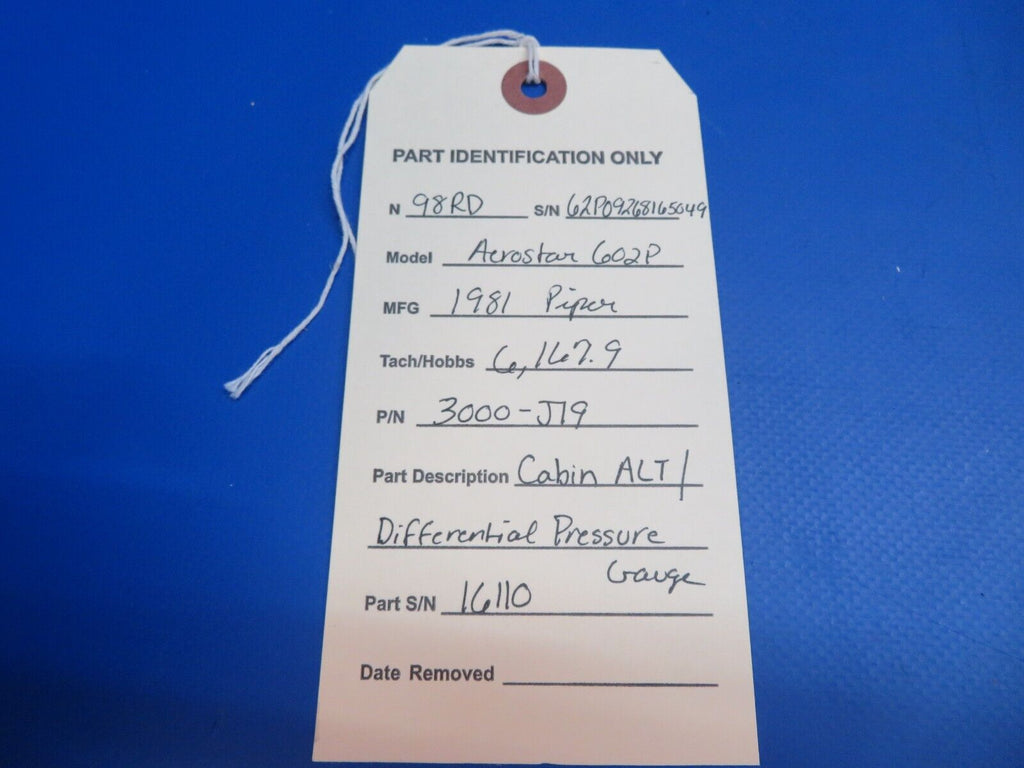 PART IDENTIFICATION ONLY
N 98RD S/N 62P09268165049
Model Aerostar 602P
MFG 1981 Piper
Tach/Hobbs 6,167.9
P/N 3000-J19
Part Description Cabin ALT/
Differential Pressure
Gauge
Part S/N 16110
Date Removed